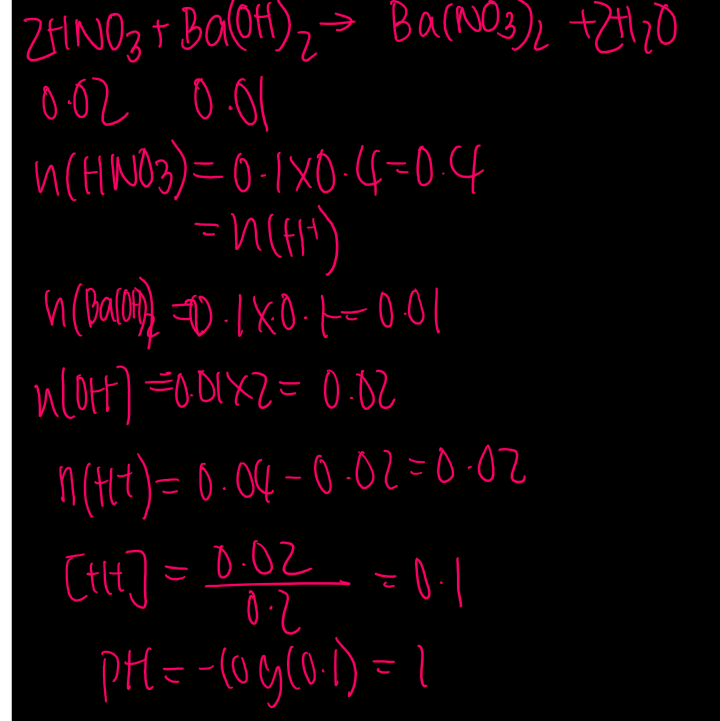 2HNO₃ + Ba(OH)₂ → Ba(NO₃)₂ + 2H₂O
0.02 0.01
n(HNO₃) = 0.1×0.4 = 0.4
= n(H⁺)
n(Ba(OH)₂ = 0.1×0.1 = 0.01
n[OH] = 0.01×2 = 0.02
n(H+) = 0.04 - 0.02 = 0.02
[H+] = 0.02/0.2 = 0.1
pH = -log(0.1) = 1